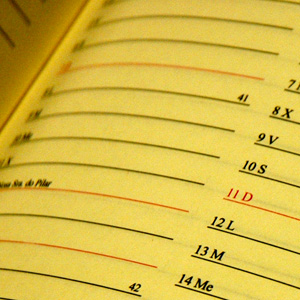 41
8 X
9 V
10 S
Sra. do Pilar
11 D
12 L
13 M
14 Me
42